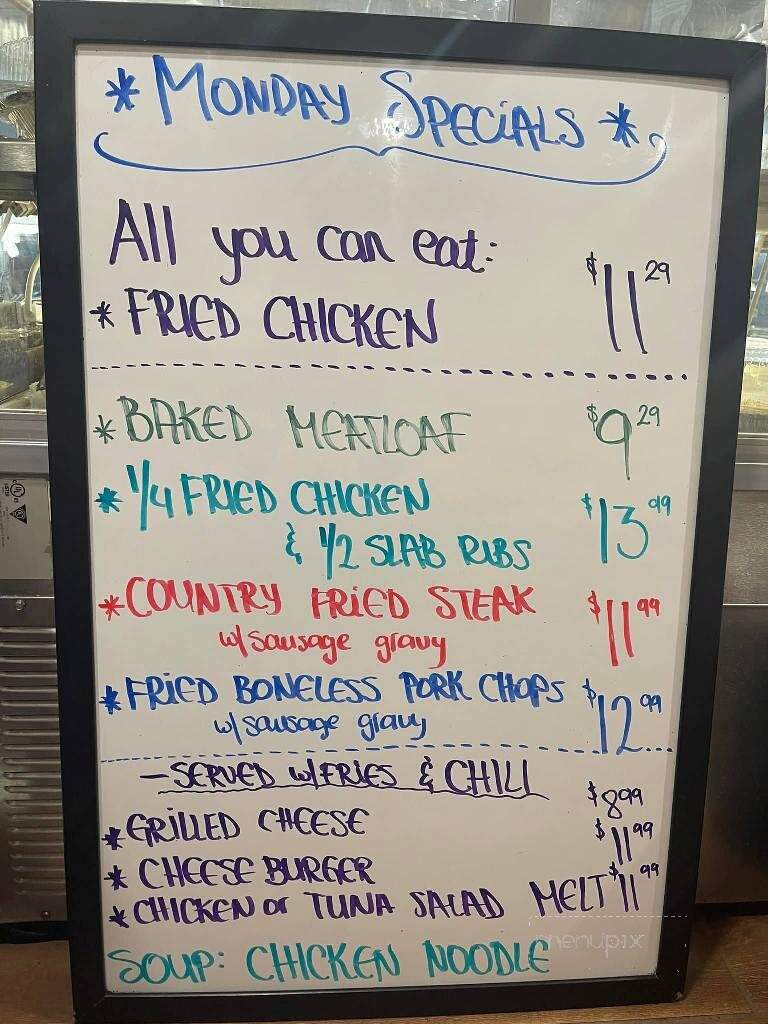 * MONDAY SPECIALS *
All you can eat:
* FRIED CHICKEN $11 29
* BAKED MEATLOAF $9 29
* 1/4 FRIED CHICKEN
& 1/2 SLAB RIBS $13 49
* COUNTRY FRIED STEAK $11 99
w/ sausage gravy
* FRIED BONELESS PORK CHOPS $12 99
w/ sausage gravy
- SERVED W/FRIES & CHILI
* GRILLED CHEESE $8 99
* CHEESE BURGER $11 99
* CHICKEN or TUNA SALAD MELT $11 99
SOUP: CHICKEN NOODLE
menupix